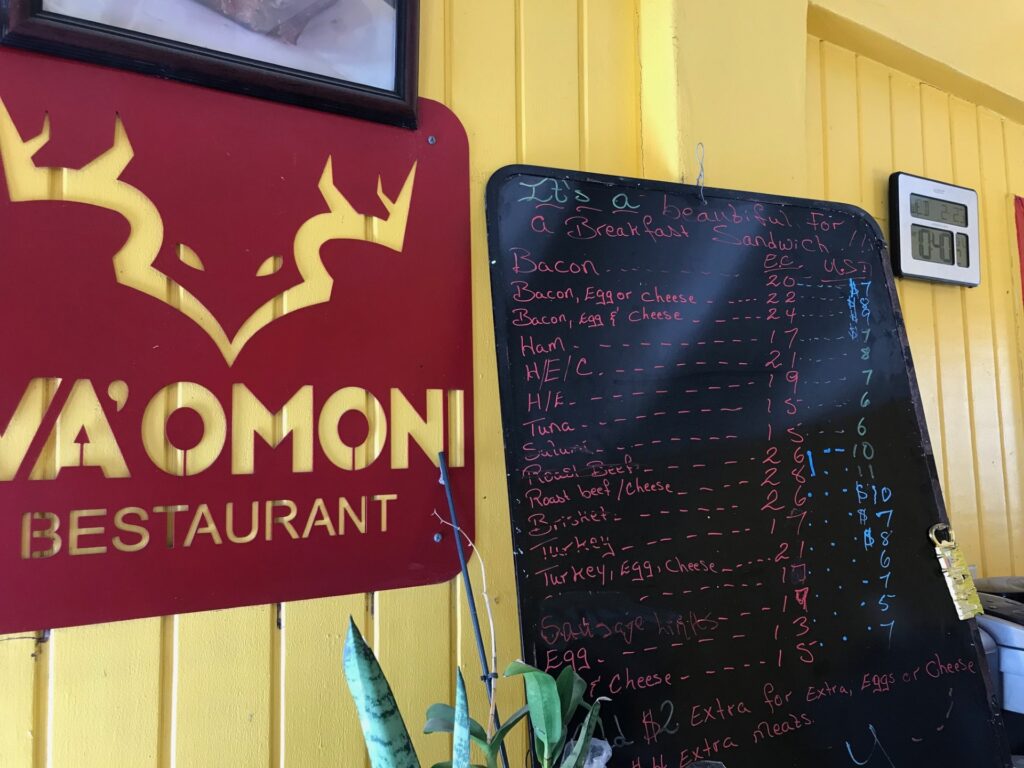 VA'OMONI
BESTAURANT
It's a beautiful For
a Breakfast Sandwich !!
E.C. U.S
Bacon 20 $7
Bacon, Egg or cheese 22 $8
Bacon, Egg & Cheese 24 $9
Ham 17 7
H/E/C 21 8
H/E 19 7
Tuna 15 6
Salami 15 6
Roast Beef 26 10
Roast beef/Cheese 28 11
Brisket 26 $10
Turkey 17 $7
Turkey, Egg, Cheese 21 $8
Sausage Links
Egg 13 5
& Cheese 15 7
$2 Extra for Extra, Eggs or Cheese
Extra meats.
10:40